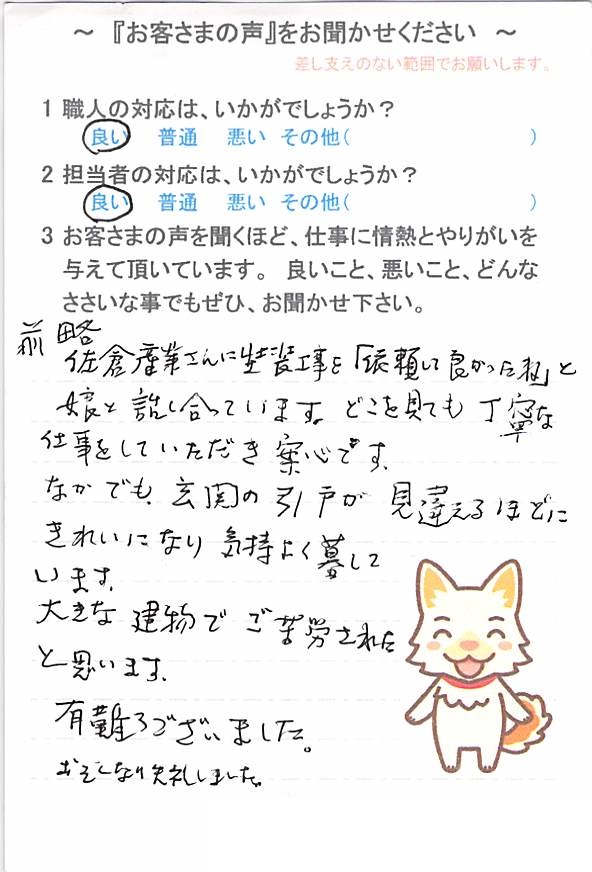 ～ 『お客さまの声』をお聞かせください ～
差し支えのない範囲でお願いします。
1 職人の対応は、いかがでしょうか？
良い 普通 悪い その他( )
2 担当者の対応は、いかがでしょうか？
良い 普通 悪い その他( )
3 お客さまの声を聞くほど、仕事に情熱とやりがいを
与えて頂いています。 良いこと、悪いこと、どんな
ささいな事でもぜひ、お聞かせ下さい。
前略
佐倉産業さんに塗装工事を「依頼して良かったね」と
娘と話し合っています。どこを見ても丁寧な
仕事をしていただき安心です。
なかでも、玄関の引戸が見違えるほどに
きれいになり気持よく暮して
います。
大きな建物でご苦労された
と思います。
有難うございました。
おそくなり失礼しました。